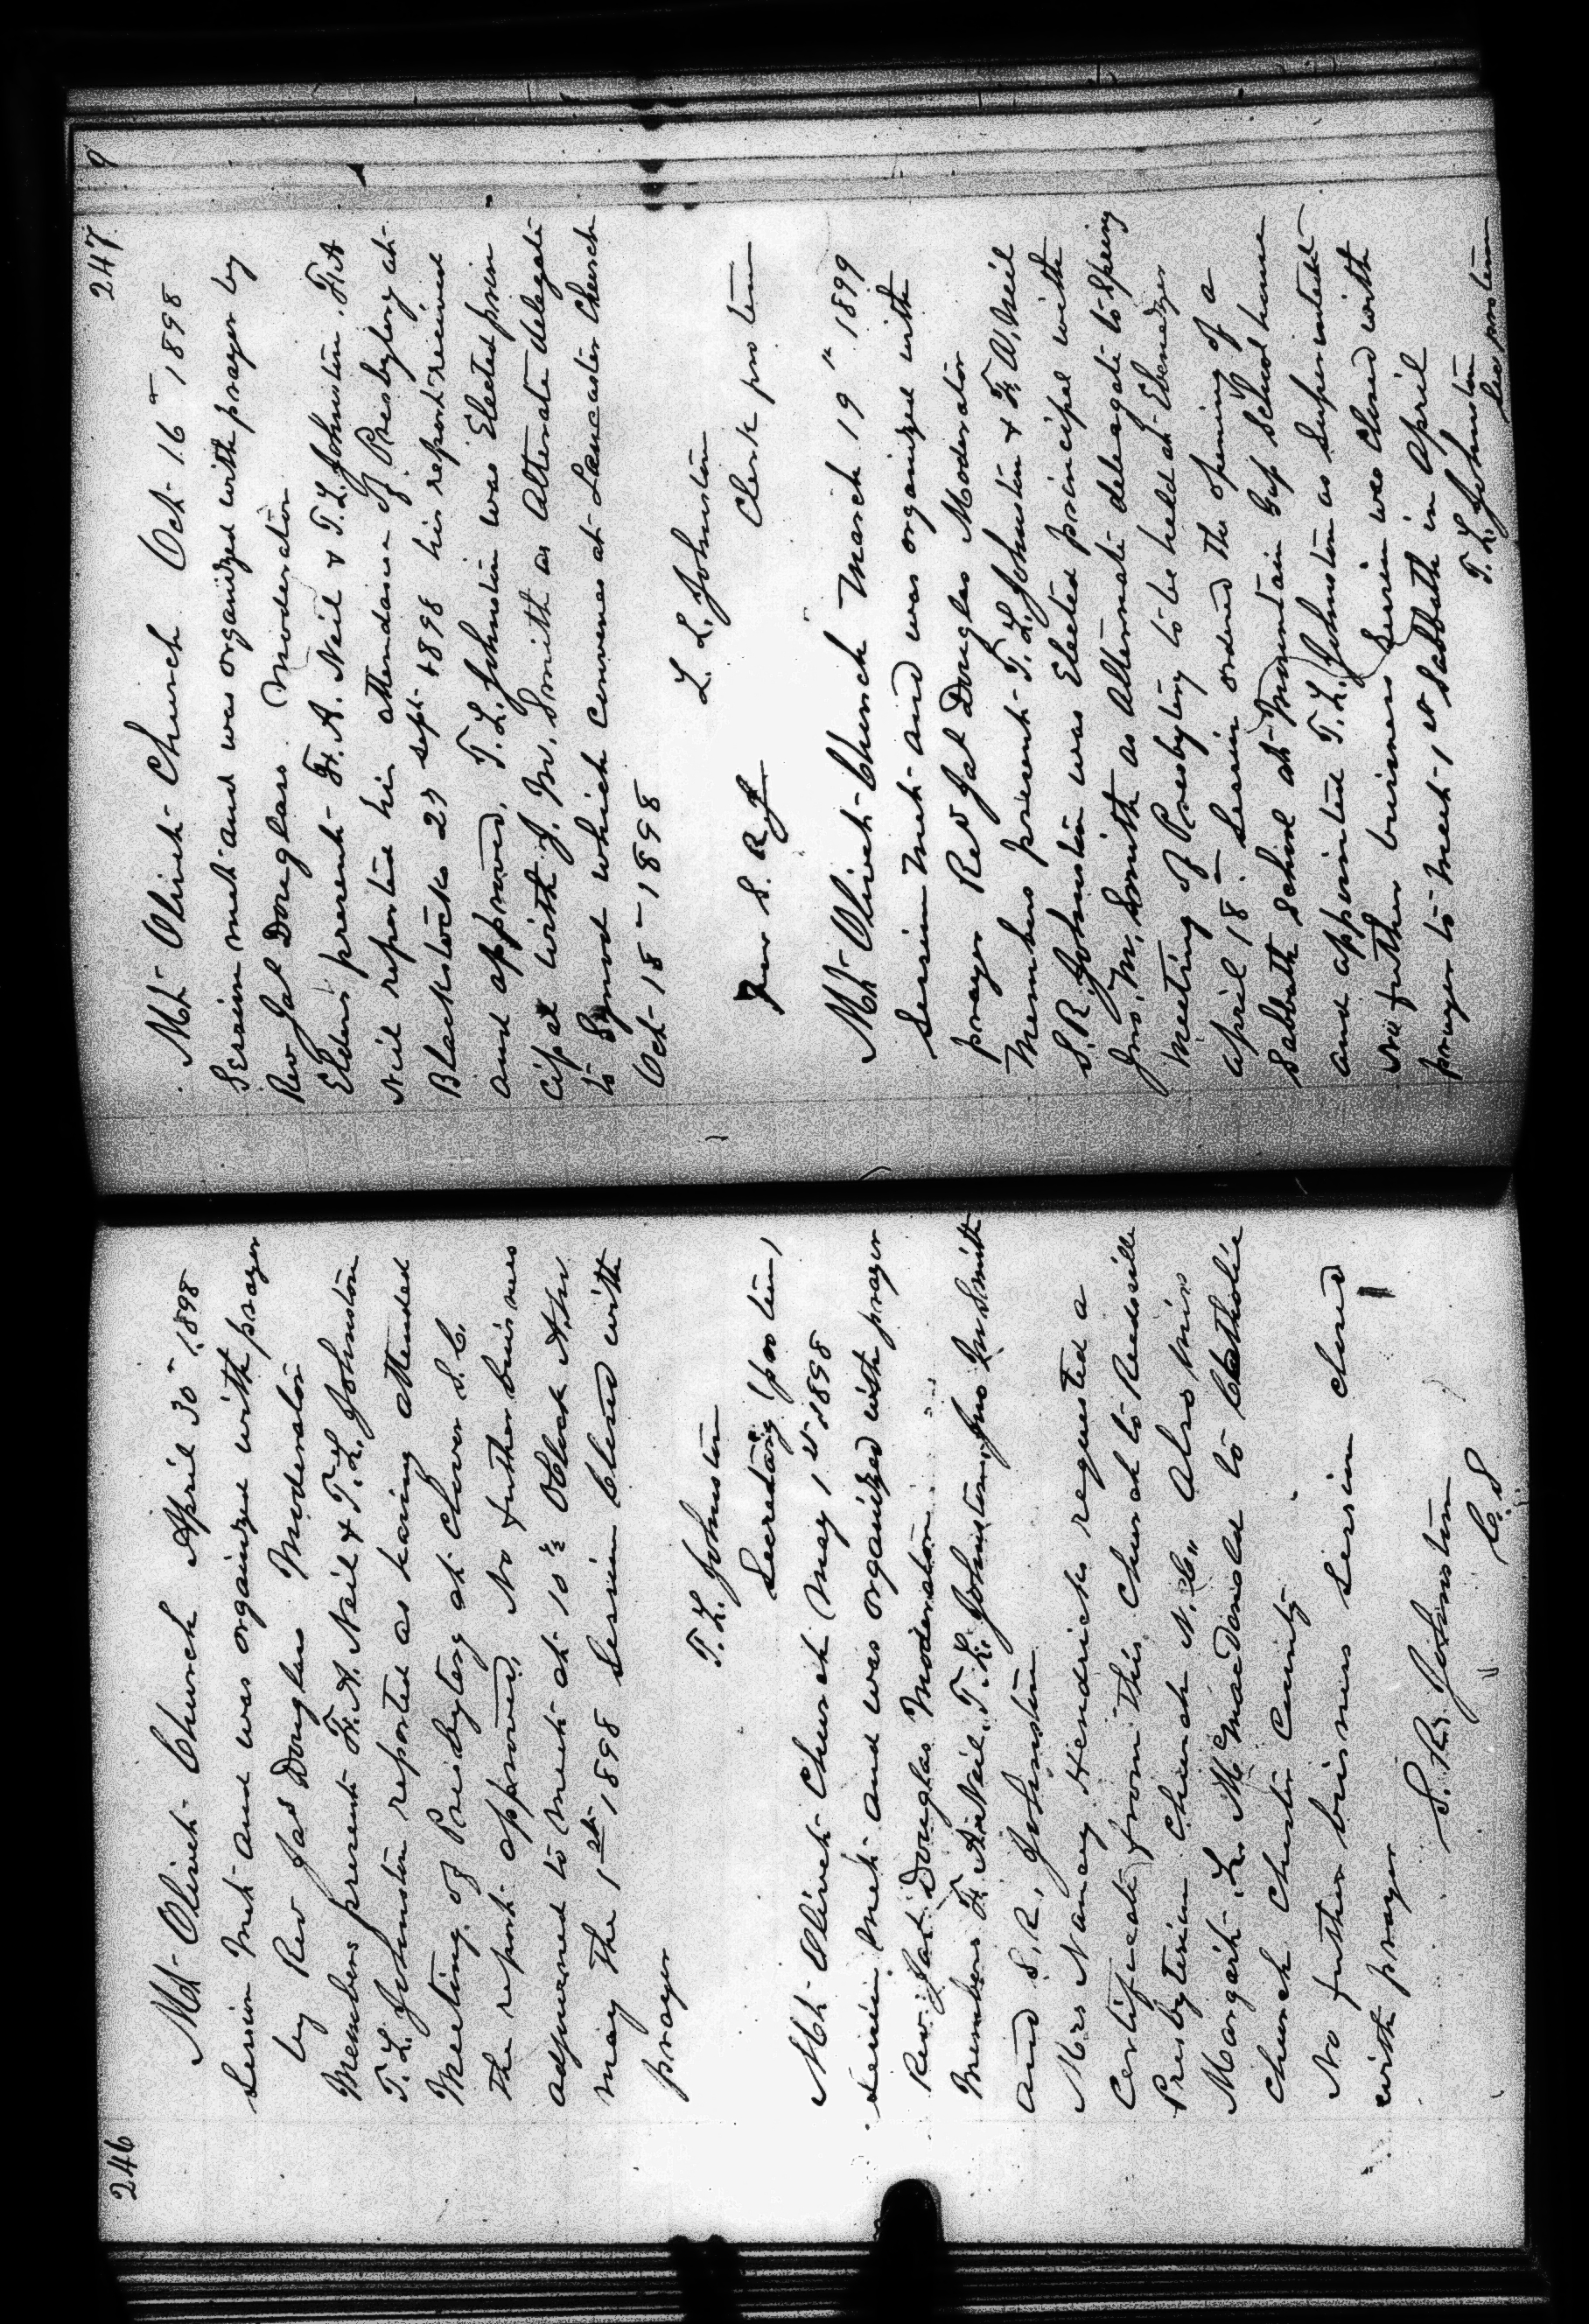 246
Mt Olivet Church April 30 1898
Session met and was organized with prayer
by Rev Jas Douglas Moderator
Members present F. A. Neil & T. L. Johnston
T. L. Johnston reported as having attended
Meeting of Presbytery at Clover S. C.
the report approved, No futher buisness
adjourned to meet at 10 ½ Oclock A.M
may the 1st 1898 Session Closed with
prayer
T. L. Johnston
Secretary pro tem,
Mt Olivet Church May 1st 1898
Session met and was organized with prayer
Rev. Jas. Douglas Moderator
Members F. A. Neil, T. L. Johnston, Jno M Smith
and S. R. Johnston
Mrs Nancy Hendricks requested a
Certificate from this Church to Reidsville
Presbyterian Church N. C., Also Miss
Margart L. McMacDonald to Catholic
Church Chester County
No futher bisness session closed
with prayer
S. R. Johnston
C. S
247
Mt Olivet Church Oct 16 1898
Session met and was organized with prayer by
Rev Jas Douglass Moderator
Elders present F. A. Neil & T. L. Johnston. F. A
Neil reported his attendance of Presbytery at
Blackstocks 27 sept 1898 his report received
and approved, T. L. Johnston was Elected prin
cipal with J. M. Smith as Alternate delegate
to Synod which convenes at Lancaster Church
Oct 18 1898
T. L. Johnston
Clerk pro tem
Mt Olivet Church March 19" 1899
Session met and was organized with
prayer Rev Jas Douglas Moderator
Members present T. L. Johnston & F. A. Neil
S. R. Johnston was Elected principal with
Jno. M. Smith as Alternate delegate to Spring
Meeting of Presbytery to be held at Ebenezer
April 18. Session ordered the opening of a
Sabbath School at Mountain Gap School house
and appointed T. L. Johnston as Superintendt
No futher buisness Session was Closed with
prayer to meet 1st Sabbath in April
T. L. Johnston
Sec protem